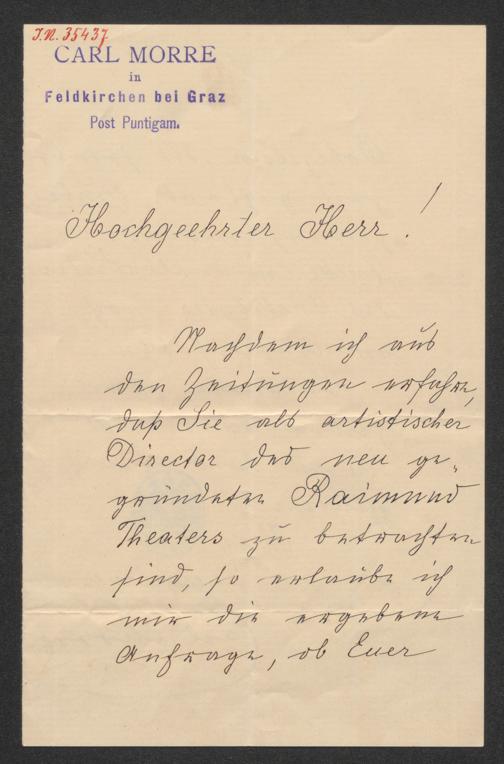 I.N. 35437
CARL MORRE
in
Feldkirchen bei Graz
Post Puntigam.
Hochgeehrter Herr!
Nachdem ich aus
den Zeitungen erfahre,
daß Sie als artistischer
Director des neu ge„
gründeten Raimund
Theaters zu betrachten
sind, so erlaube ich
mir die ergebene
Anfrage, ob Euer